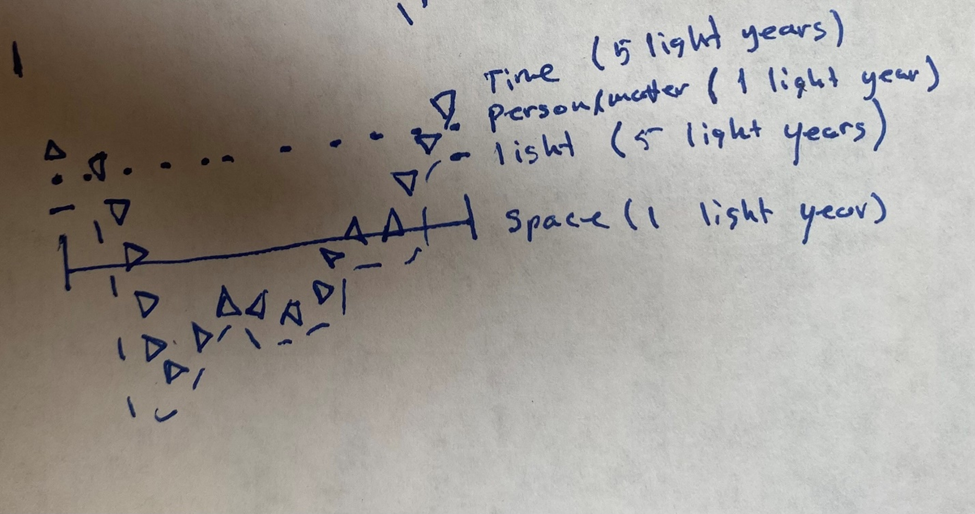 Time (5 light years)
person/matter (1 light year)
light (5 light years)
space (1 light year)